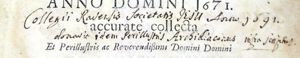 ANNO DOMINI 1671.
Collegii Radensis Societatis Jesu Anno 1691.
donavit idem Perillustris Archidiaconus
accurate collecta
Et Perillustris ac Reverendissimi Domini Domini